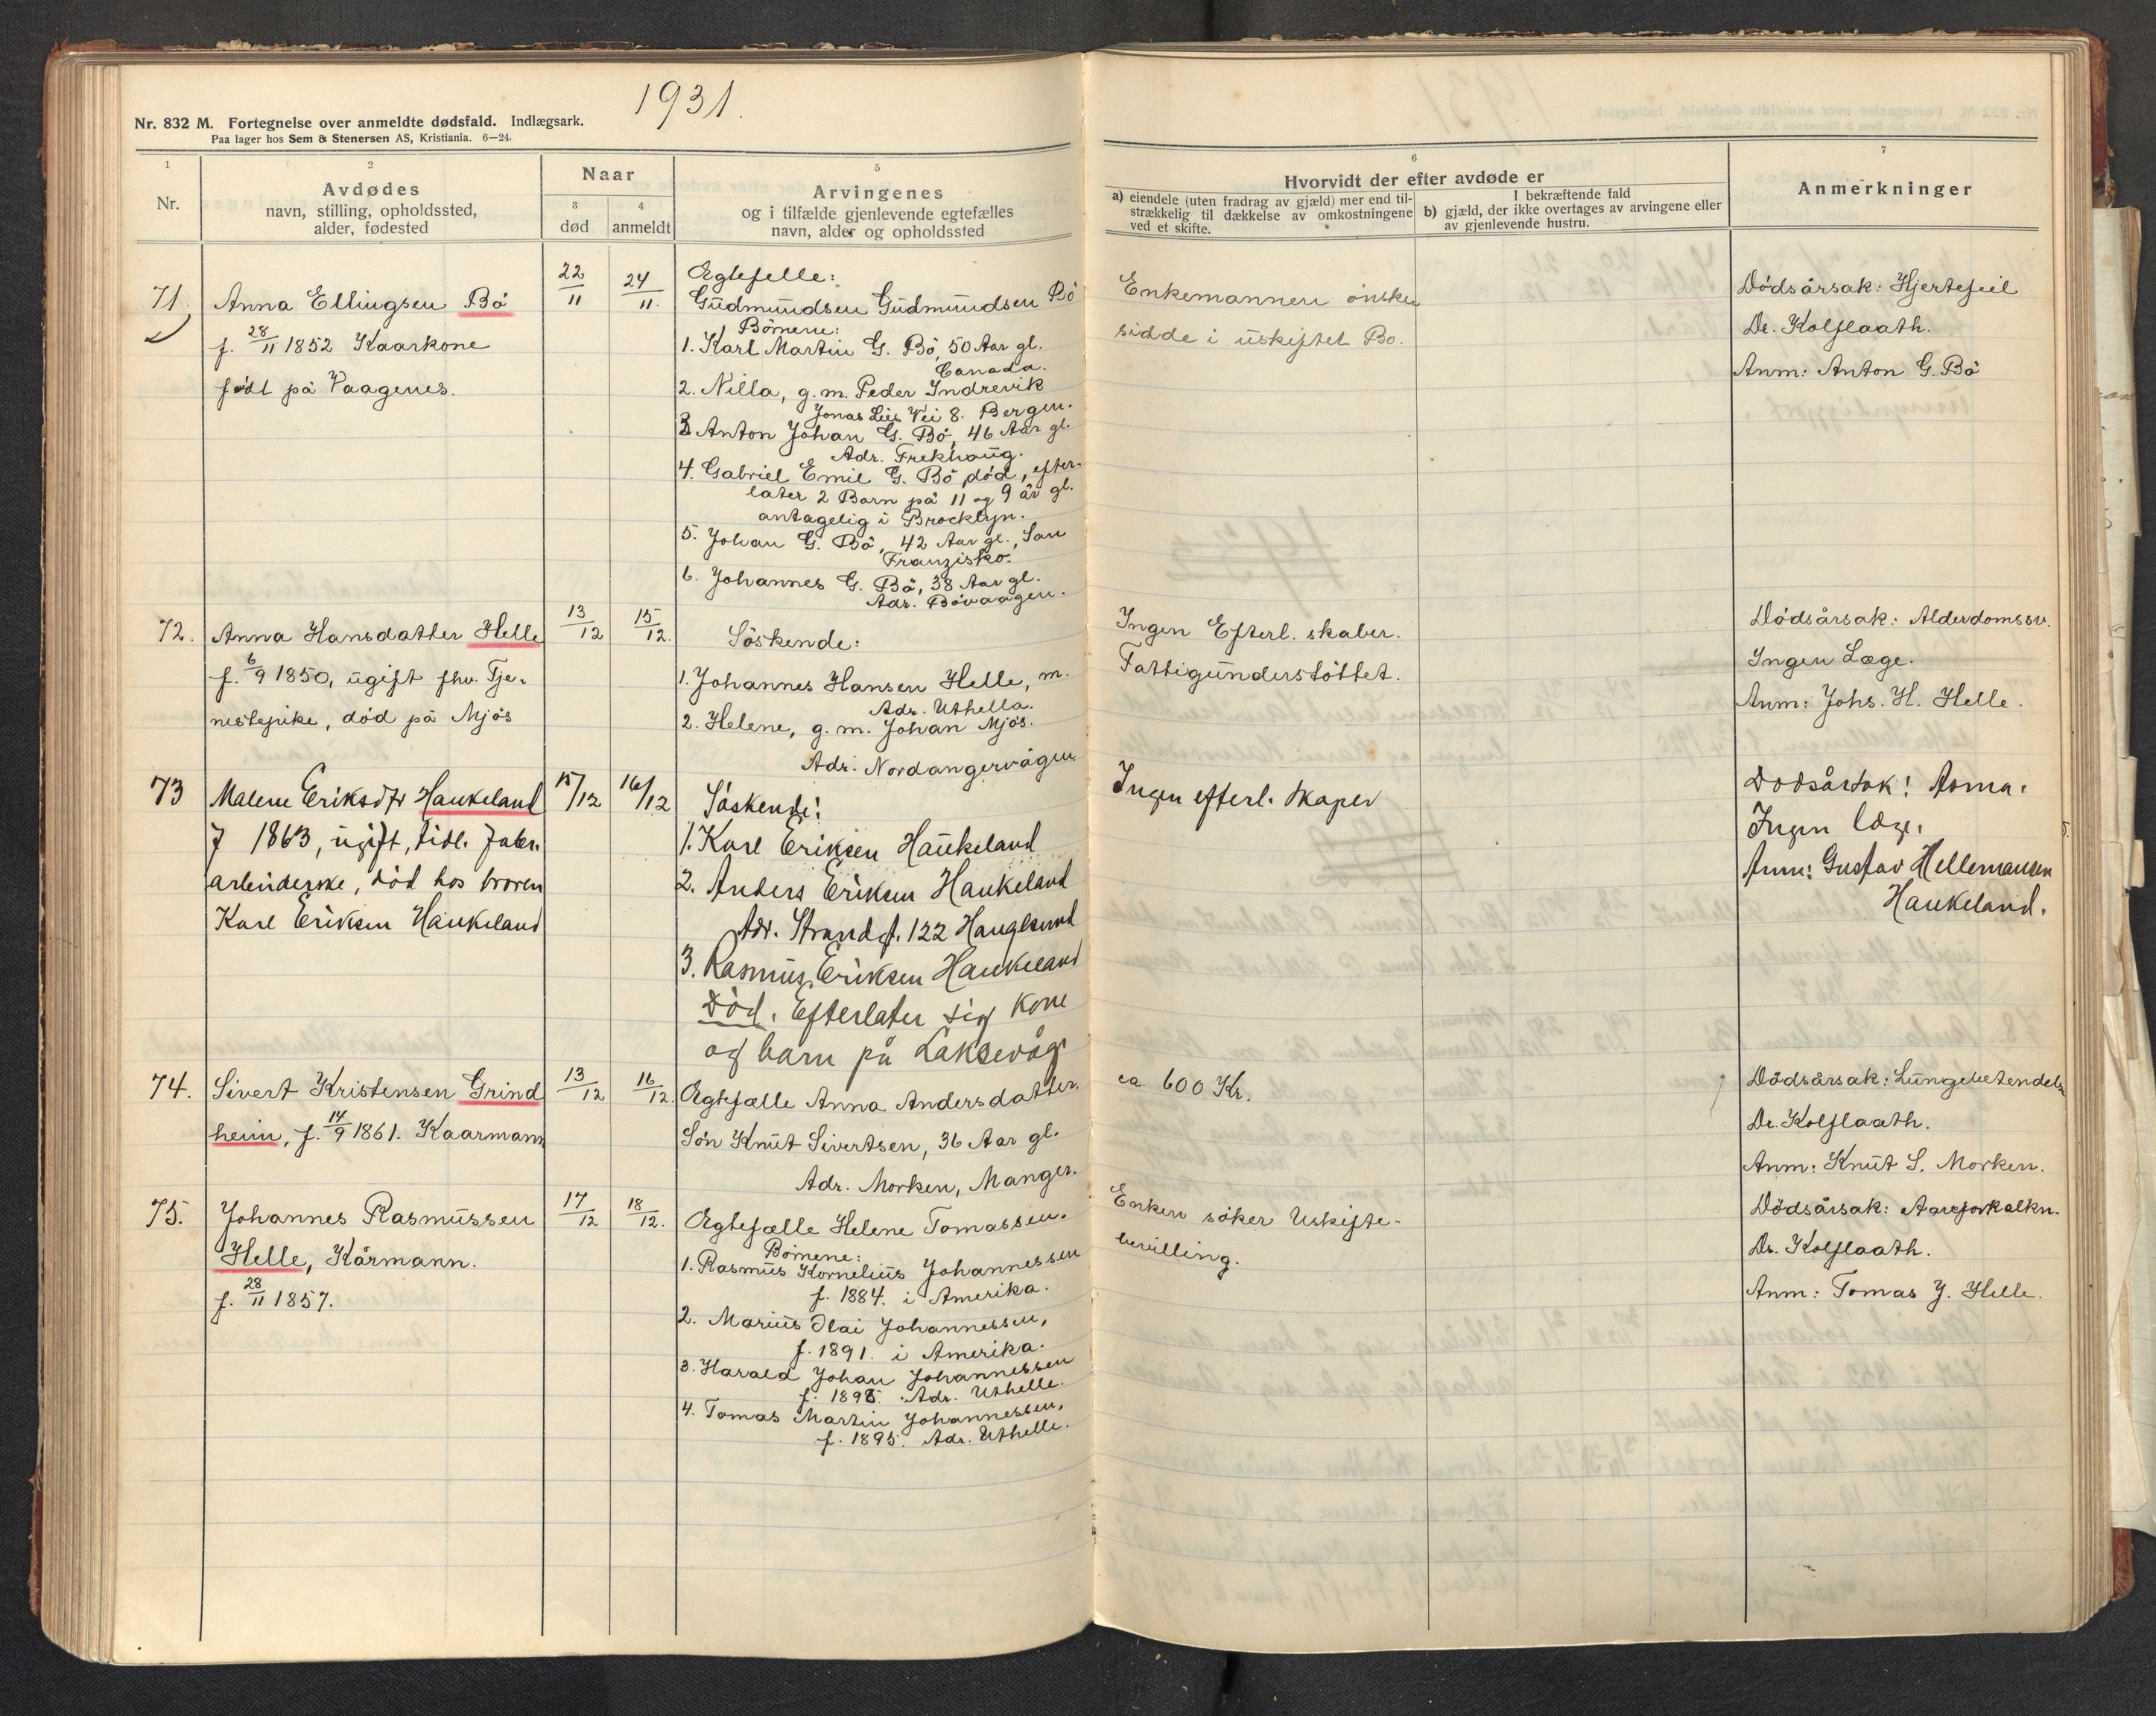 1931.
Nr. 832 M. Fortegnelse over anmeldte dødsfald. Indlægsark.
Paa lager hos Sem & Stenersen AS, Kristiania. 6—24.
1
Nr.
2
Avdødes
navn, stilling, opholdssted,
alder, fødested
Naar
3
død
4
anmeldt
5
Arvingenes
og i tilfælde gjenlevende egtefælles
navn, alder og opholdssted
6
Hvorvidt der efter avdøde er
a) eiendele (uten fradrag av gjæld) mer end til-
strækkelig til dækkelse av omkostningene
ved et skifte.
I bekræftende fald
b) gjæld, der ikke overtages av arvingene eller
av gjenlevende hustru.
7
Anmerkninger
71.
Anna Ellingsen Bö
f. 28/11 1852 Kaarkone
född på Vaagenes.
22/11
24/11.
Egtefelle:
Gudmundsen Gudmundsen Bö
Börnene:
1. Karl Martin G. Bö, 50 Aar gl.
Canada.
2. Nilla, g. m. Peder Indrevik
Jonas Lies Vei 8. Bergen.
3 Anton Johan G. Bö, 46 Aar gl.
Adr. Frekhaug.
4. Gabriel Emil G. Bö, död, efter-
later 2 Barn på 11 og 9 år gl.
antagelig i Brocklyn.
5. Johan G. Bö, 42 Aar gl., San
Franzisko.
6. Johannes G. Bö, 38 Aar gl.
Adr. Bövaagen.
Enkemannen önsker
sidde i uskiftet Bo.
Dödsårsak: Hjertefeil
Dr. Kolflaath.
Anm: Anton G. Bö
72.
Anna Hansdatter Helle
f. 6/9 1850, ugift fhv. Tje-
nestepike, död på Mjös
13/12
15/12.
Söskende:
1. Johannes Hansen Helle, m.
Adr. Uthella.
2. Helene, g. m. Johan Mjös.
Adr. Nordangervågen.
Ingen Efterl. skaber.
Fattigunderstöttet.
Dödsårsak: Alderdomssv.
Ingen Læge.
Anm: Johs. H. Helle.
73
Malene Eriksdtr Haukeland
f 1863, ugift, tidl. fabr.
arbeiderske, död hos broren
Karl Eriksen Haukeland
15/12
16/12
Söskende:
1. Karl Eriksen Haukeland
2. Anders Eriksen Haukeland
Adr. Strandgt. 122 Haugesund
3. Rasmus Eriksen Haukeland
Död. Efterlater sig kone
og barn på Laksevåg
Ingen efterl. skaper
Dödsårsak: Asma.
Ingen læge.
Anm: Gustav Hellemansen
Haukeland.
74.
Sivert Kristensen Grind
heim, f. 14/9 1861. Kaarmann
13/12
16/12.
Egtefælle Anna Andersdatter.
Sön Knut Sivertsen, 36 Aar gl.
Adr. Morken, Manger.
ca. 600 Kr.
Dödsårsak: Lungebetendelse
Dr. Kolflaath.
Anm: Knut S. Morken.
75.
Johannes Rasmussen
Helle, Kårmann.
f. 28/11 1857.
17/12
18/12.
Egtefælle Helene Tomassen.
Börnene:
1. Rasmus Kornelius Johannessen
f. 1884. i Amerika.
2. Marius Olai Johannessen,
f. 1891. i Amerika.
3. Harald Johan Johannessen
f. 1898. Adr. Uthelle.
4. Tomas Martin Johannessen,
f. 1895. Adr. Uthelle.
Enken söker Uskifte-
bevilling.
Dödsårsak: Aareforkalkn.
Dr. Kolflaath.
Anm: Tomas J. Helle.